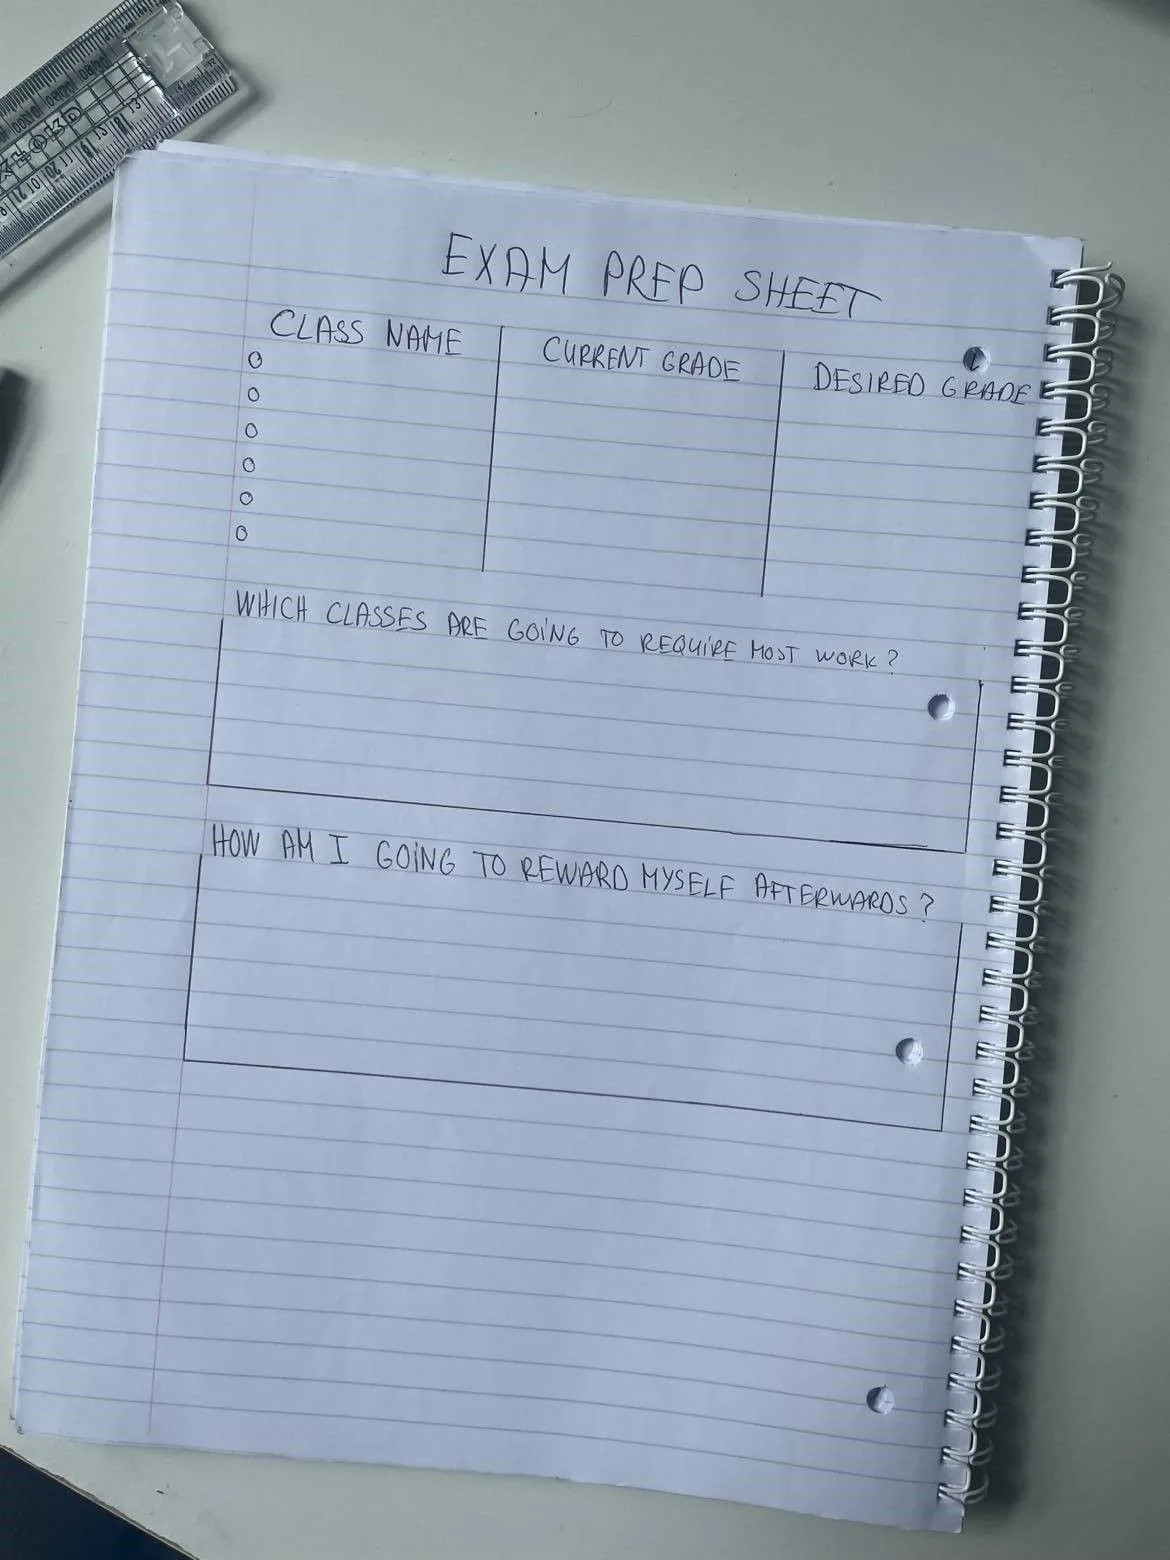 EXAM PREP SHEET
CLASS NAME CURRENT GRADE DESIRED GRADE
WHICH CLASSES ARE GOING TO REQUIRE MOST WORK?
HOW AM I GOING TO REWARD MYSELF AFTERWARDS?